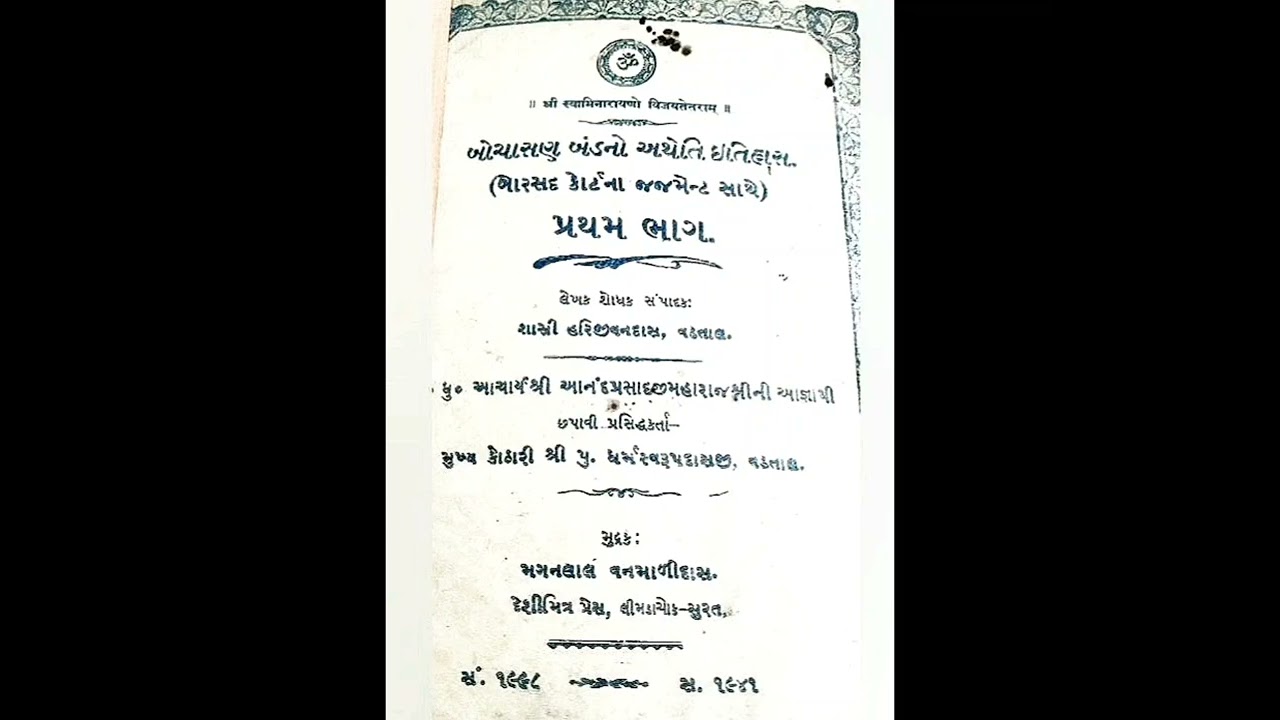 ૐ
॥ શ્રી સ્વામિનારાયણો વિજયતેતરામ્ ॥
બોચાસણ બંડનો અથેતિ ઇતિહાસ.
(બોરસદ કોર્ટના જજમેન્ટ સાથે)
પ્રથમ ભાગ.
લેખક શોધક સંપાદક:
શાસ્ત્રી હરિજીવનદાસ, વડતાલ.
ધુ૦ આચાર્યશ્રી આનંદપ્રસાદજીમહારાજશ્રીની આજ્ઞાથી
છપાવી પ્રસિદ્ધકર્તા–
મુખ્ય કોઠારી શ્રી પુ. ધર્મસ્વરૂપદાસજી, વડતાલ.
મુદ્રક:
મગનલાલ વનમાળીદાસ.
દેશીમિત્ર પ્રેસ, લીમડાચોક–સુરત.
સં. ૧૯૯૮ સ. ૧૯૪૧